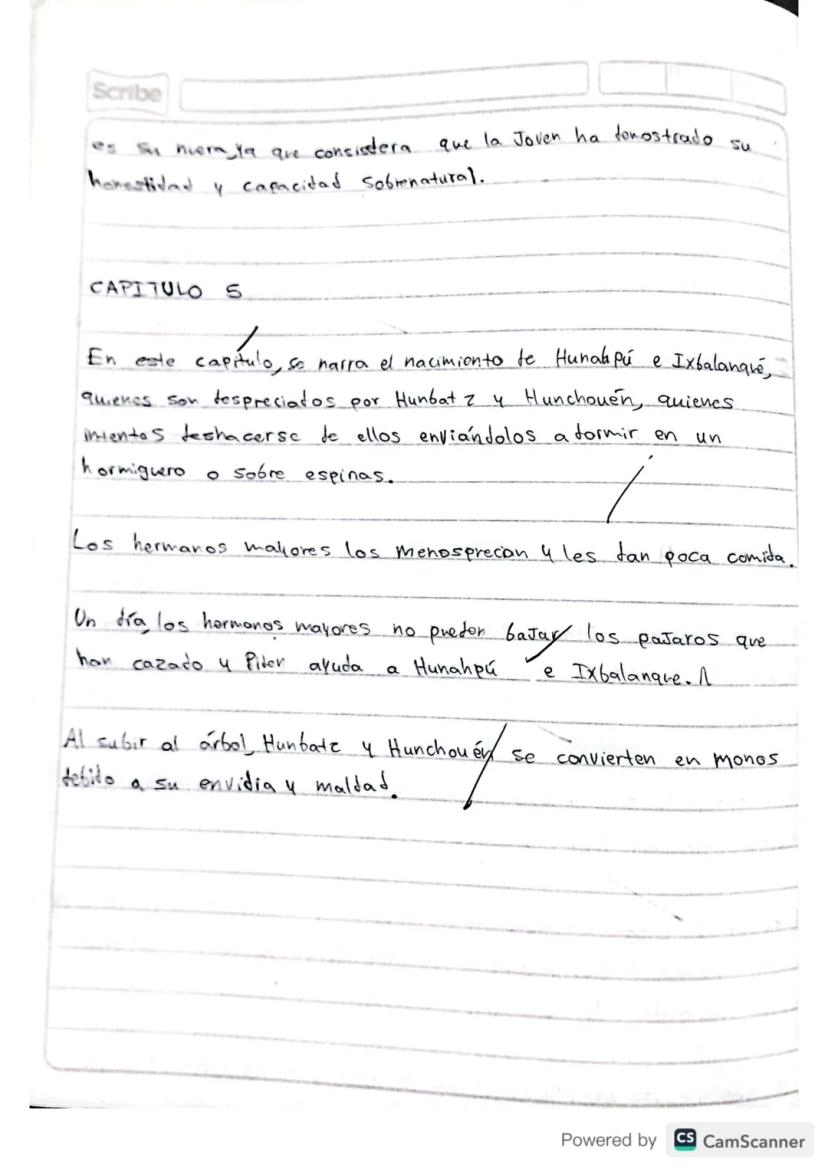 Scribe
es su nuera, ya que considera que la Joven ha demostrado su
honestidad y capacidad sobrenatural.
CAPITULO 5
En este capítulo, se narra el nacimiento de Hunahpú e Ixbalanqué,
quienes son despreciados por Hunbatz y Hunchouén, quienes
intentos deshacerse de ellos enviándolos a dormir en un
hormiguero o sobre espinas.
Los hermanos mayores los menosprecian y les dan poca comida.
Un día, los hermanos mayores no pueden bajar los pajaros que
han cazado y Piden ayuda a Hunahpú e Ixbalanque.
Al subir al árbol, Hunbatz y Hunchouén se convierten en monos
debido a su envidia y maldad.
Powered by CS CamScanner